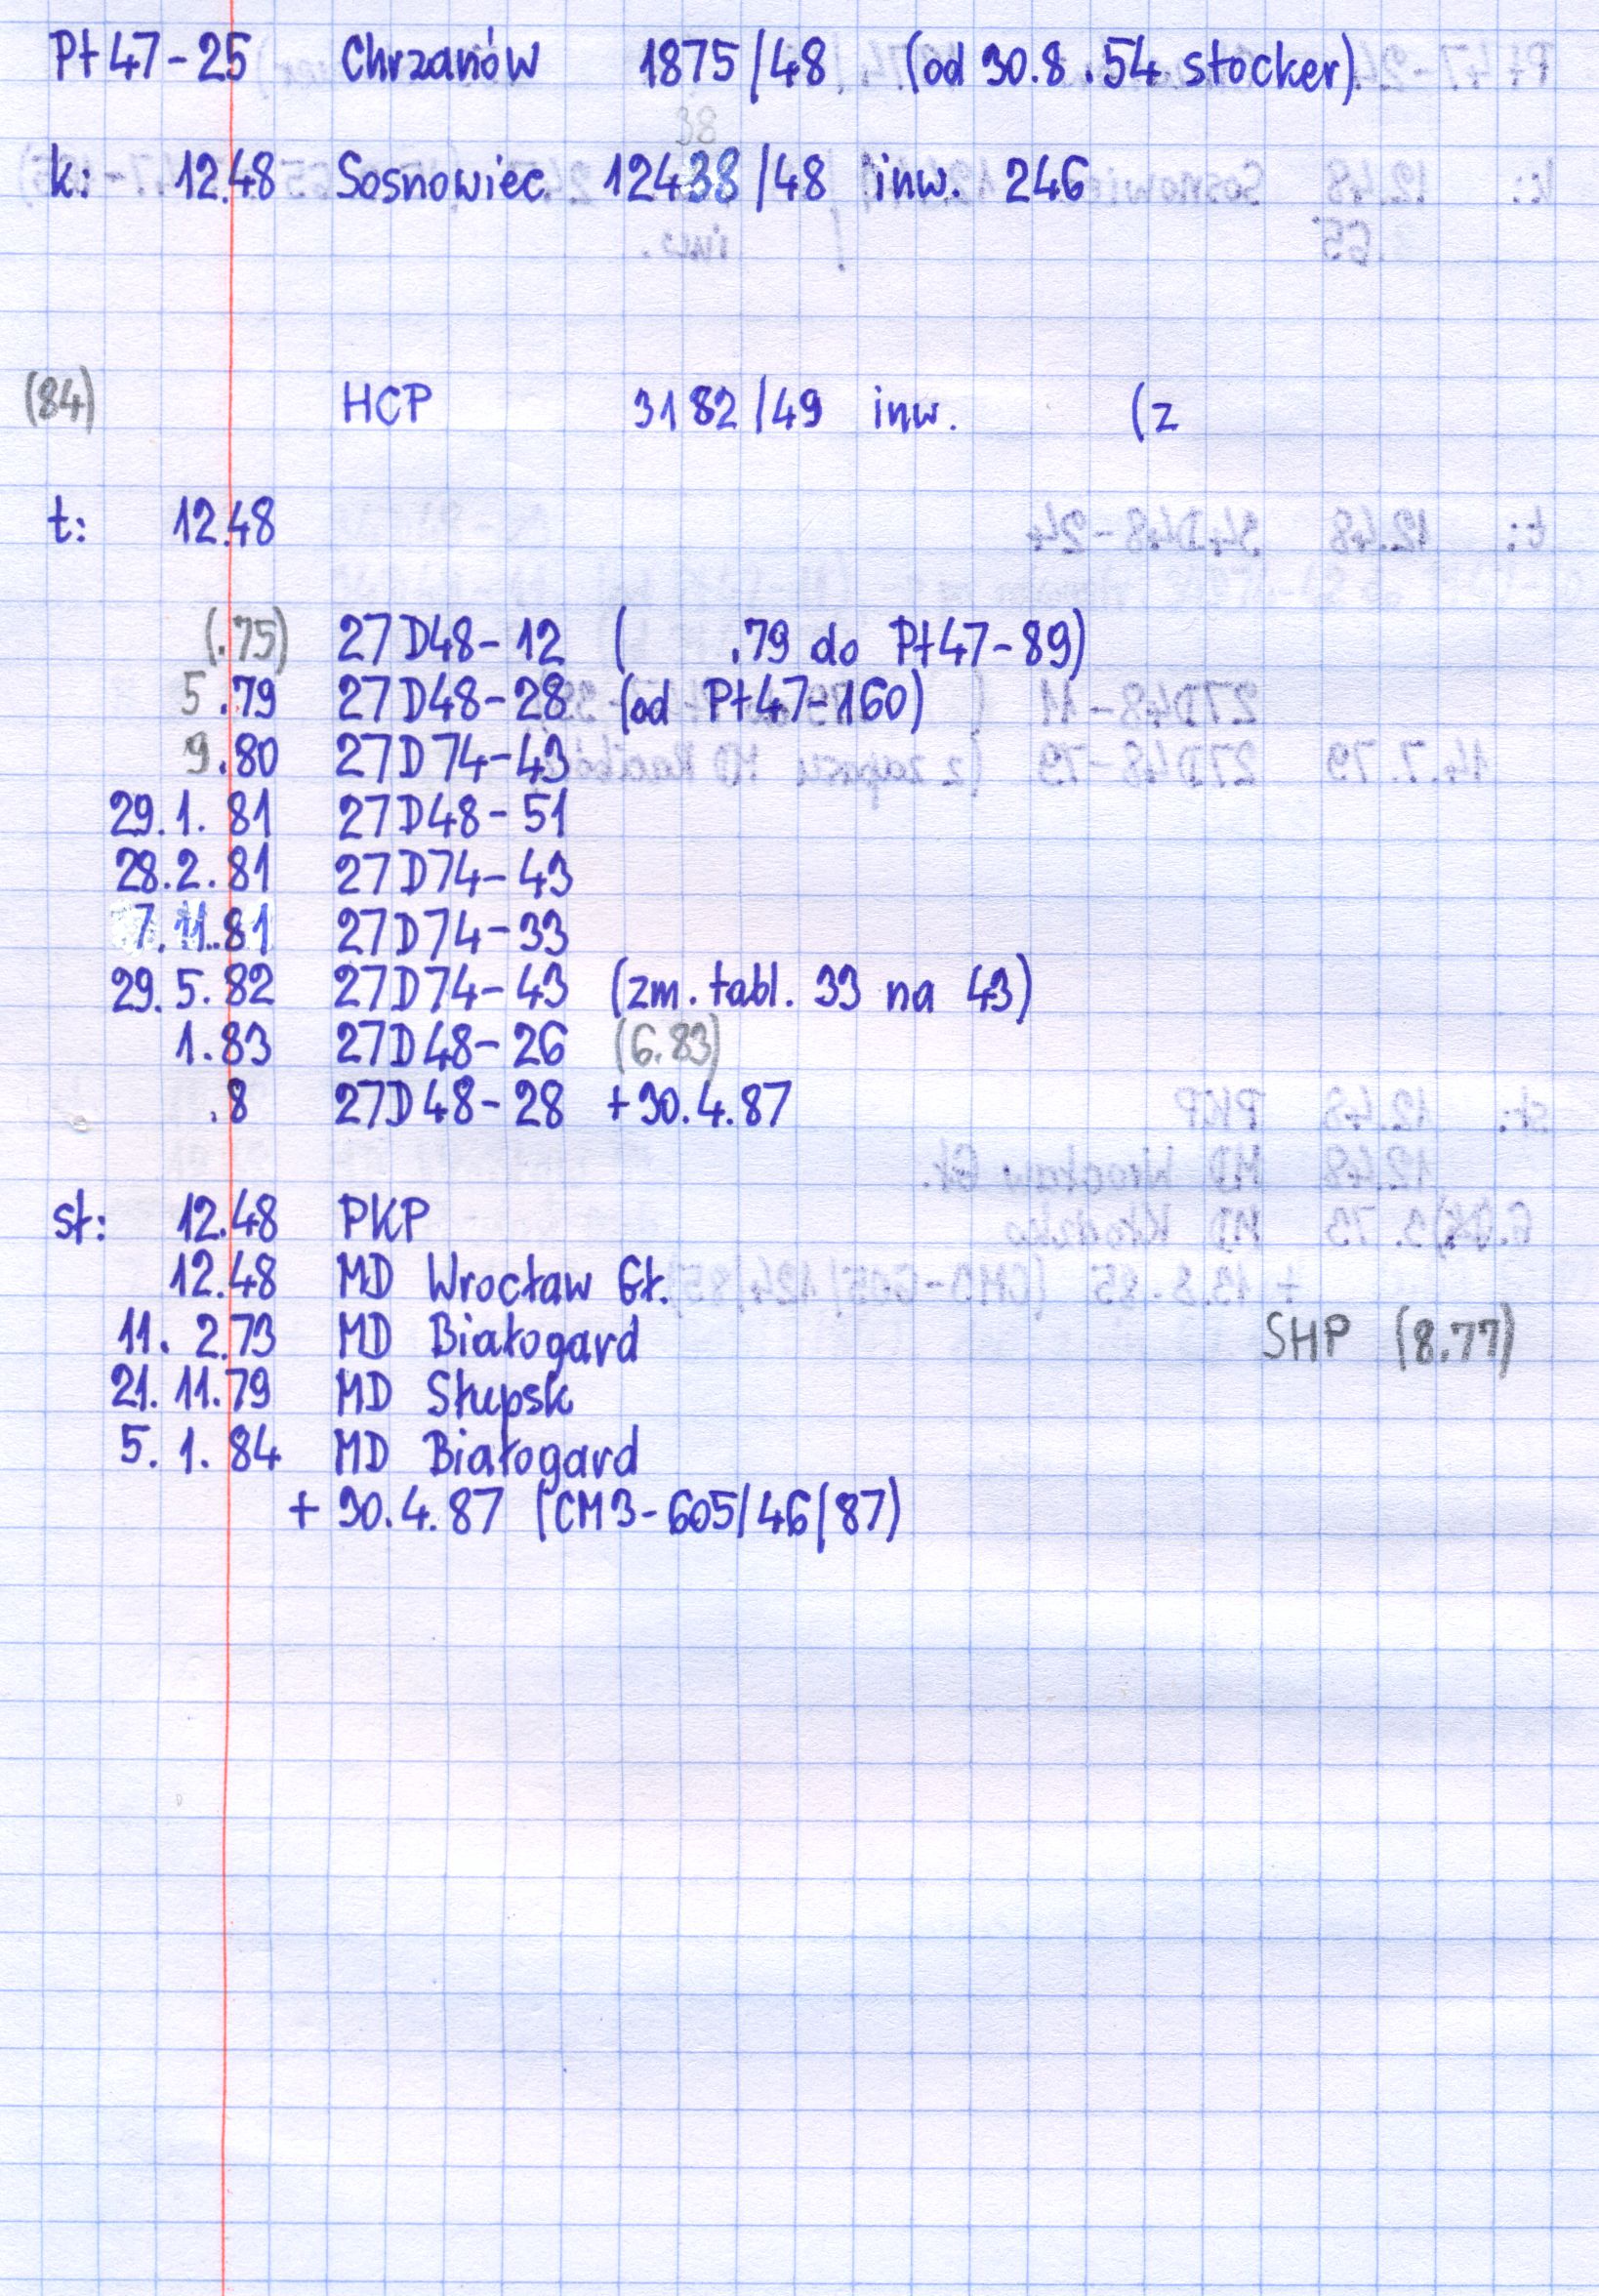 Pt47-25 Chrzanów 1875/48 (od 30.8.54 stocker)
38
k: 12.48 Sosnowiec 12438/48 inw. 246
(84) HCP 3182/49 inw. (z
t: 12.48
(.75) 27D48-12 ( .79 do Pt47-89)
5.79 27D48-28 (od Pt47-160)
9.80 27D74-43
29.1.81 27D48-51
28.2.81 27D74-43
7.11.81 27D74-33
29.5.82 27D74-43 (zm. tabl. 33 na 43)
1.83 27D48-26 (6.83)
.8 27D48-28 +30.4.87
st: 12.48 PKP
12.48 MD Wrocław Gł.
11. 2.73 MD Białogard SHP (8.77)
21. 11.79 MD Słupsk
5. 1. 84 MD Białogard
+ 30.4.87 (CM3-605/46/87)